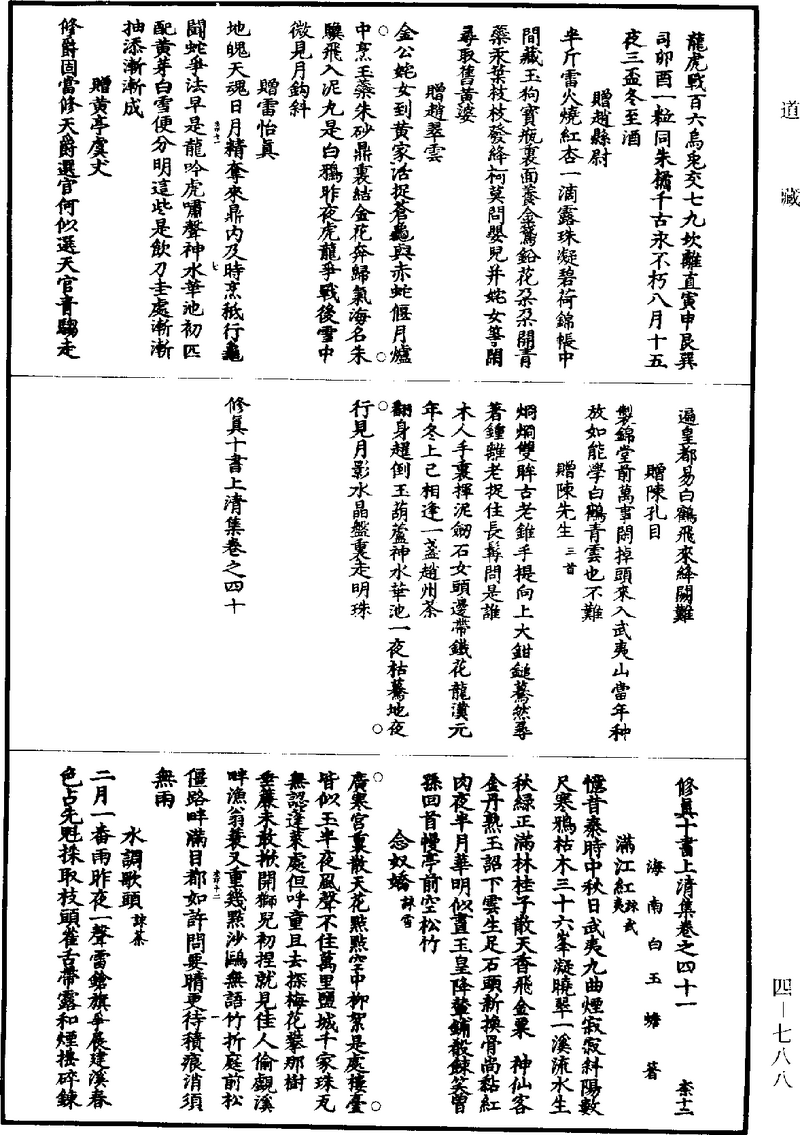 道藏
龍虎戰百六烏兔交七九坎離直寅申艮巽
司卯酉一粒同朱橘千古永不朽八月十五
夜三盃冬至酒
贈趙縣尉
半斤雷火燒紅杏一滴露珠凝碧荷錦帳中
間藏玉狗寶瓶裏面養金鵞鉛花朵朵開青
藥汞葉枝枝發絳柯莫問嬰兒并姹女等閑
尋取舊黃婆
贈趙翠雲
金公姹女到黃家活捉蒼龜與赤蛇偃月爐
中烹玉藥朱砂鼎裏結金花奔歸氣海名朱
驥飛入泥丸是白鴉昨夜虎龍爭戰後雪中
微見月鈎斜
贈雷怡真
地魄天魂日月精奪來鼎內及時烹秪行龜
鬪蛇爭法早是龍吟虎嘯聲神水華池初匹
配黃芽白雪便分明這些是飲刀圭處漸漸
抽添漸漸成
贈黃亭虞丈
修爵固當修天爵選官何似選天官青騧走
遍皇都易白鶴飛來絳闕難
贈陳孔目
製錦堂前萬事閑掉頭來入武夷山當年种
放如能學白鶴青雲也不難
贈陳先生三首
烱烱雙眸古老錐手提向上大鉗鎚驀然尋
著鍾離老捉住長髯問是誰
木人手裏揮泥劒石女頭邊帶鐵花龍漢元
年冬上巳相逢一盞趙州茶
翻身趯倒玉葫蘆神水華池一夜枯驀地夜
行見月影水晶盤裏走明珠
修真十書上清集卷之四十
修真十書上清集卷之四十一 柰十二
海南白玉蟾著
滿江紅詠武夷
憶昔秦時中秋日武夷九曲煙寂寂斜陽數
尺寒鴉枯木三十六峯凝曉翠一溪流水生
秋綠正滿林桂子散天香飛金粟 神仙客
金丹熟玉詔下雲生足石頭新換骨尚黏紅
肉夜半月華明似晝玉皇降輦鋪殽餗笑曾
孫回首幔亭前空松竹
念奴嬌詠雪
廣寒宮裏散天花點點空中柳絮是處樓臺
皆似玉半夜風聲不住萬里鹽城千家珠瓦
無認蓬萊處但呼童且去探梅花攀那樹
垂簾未敢掀開獅兒初捏就見佳人偷覷溪
畔漁翁蓑又重幾點沙鷗無語竹折庭前松
僵路畔滿目都如許問要晴更待積痕消須
無雨
水調歌頭詠茶
二月一番雨昨夜一聲雷鎗旗爭展建溪春
色占先魁採取枝頭雀舌帶露和煙擣碎鍊
四一七八八